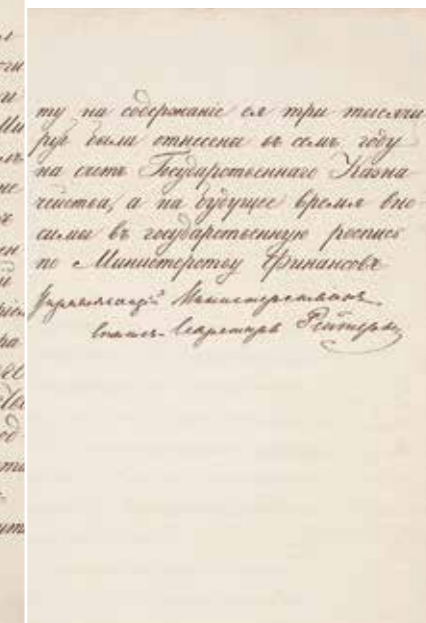 ту на содержаніе ея три тысячи
руб. были отнесены въ семъ году
на счетъ Государственнаго Казна
чейства, а на будущее время вно-
симы въ государственную роспись
по Министерству Финансовъ
Управляющій Министерствомъ
Статсъ-Секретарь Рейтернъ